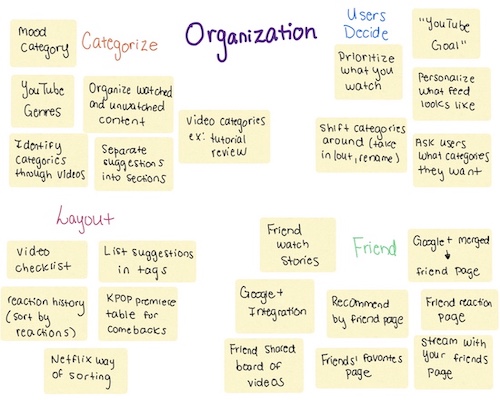 Organization
Categorize
Mood
Category
YouTube
Genres
Organize watched
and unwatched
content
Identify
categories
through videos
Separate
suggestions
into sections
Video categories
ex: tutorial
review
Users
Decide
Prioritize
what you
watch
"YouTube
Goal"
Personalize
what feed
looks like
Shift categories
around (take
in/out, rename)
Ask users
what categories
they want
Layout
video
checklist
List suggestions
in tags
reaction history
(sort by
reactions)
KPOP premiere
table for
comebacks
Netflix way
of sorting
Friend
Friend
watch
Stories
Google+ merged
↓
friend page
Google+
Integration
Recommend
by friend page
Friend reaction
page
Friend shared
board of
videos
Friends' favorites
page
stream with
your friends
page